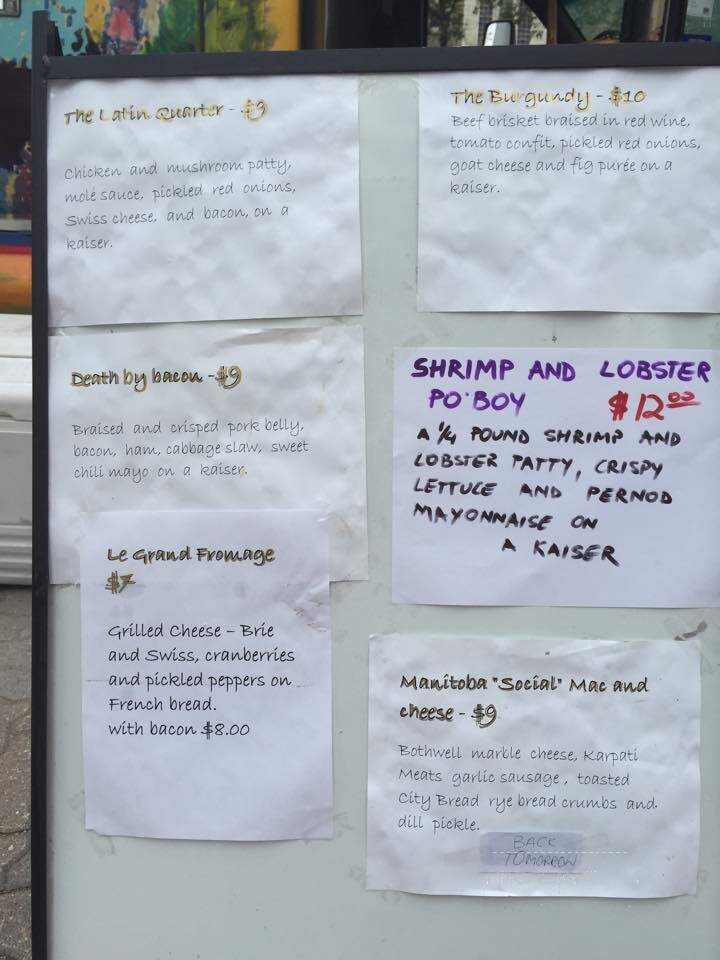 The Latin Quarter - $9
Chicken and mushroom patty,
molé sauce, pickled red onions,
Swiss cheese, and bacon, on a
kaiser.
The Burgundy - $10
Beef brisket braised in red wine,
tomato confit, pickled red onions,
goat cheese and fig purée on a
kaiser.
Death by bacon - $9
Braised and crisped pork belly,
bacon, ham, cabbage slaw, sweet
chili mayo on a kaiser.
SHRIMP AND LOBSTER
PO'BOY $12.00
A 1/4 POUND SHRIMP AND
LOBSTER PATTY, CRISPY
LETTUCE AND PERNOD
MAYONNAISE ON
A KAISER
Le Grand Fromage
$7
Grilled Cheese – Brie
and Swiss, cranberries
and pickled peppers on
French bread.
with bacon $8.00
Manitoba "Social" Mac and
cheese - $9
Bothwell marble cheese, Karpati
Meats garlic sausage, toasted
City Bread rye bread crumbs and
dill pickle.
BACK
TOMORROW